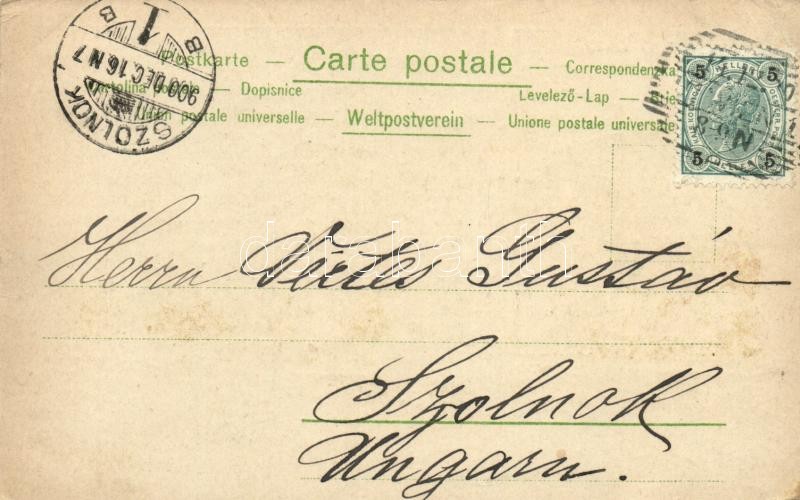 Postkarte — Carte postale — Correspondenzka
Cartolina postale — Dopisnice Levelező-Lap —
Union postale universelle — Weltpostverein — Unione postale universale
SZOLNOK
900 DEC. 16 N 7
B 1 B
5 HELLER 5
5 5
Herrn Vértes Gustáv
Szolnok
Ungarn.
databanth